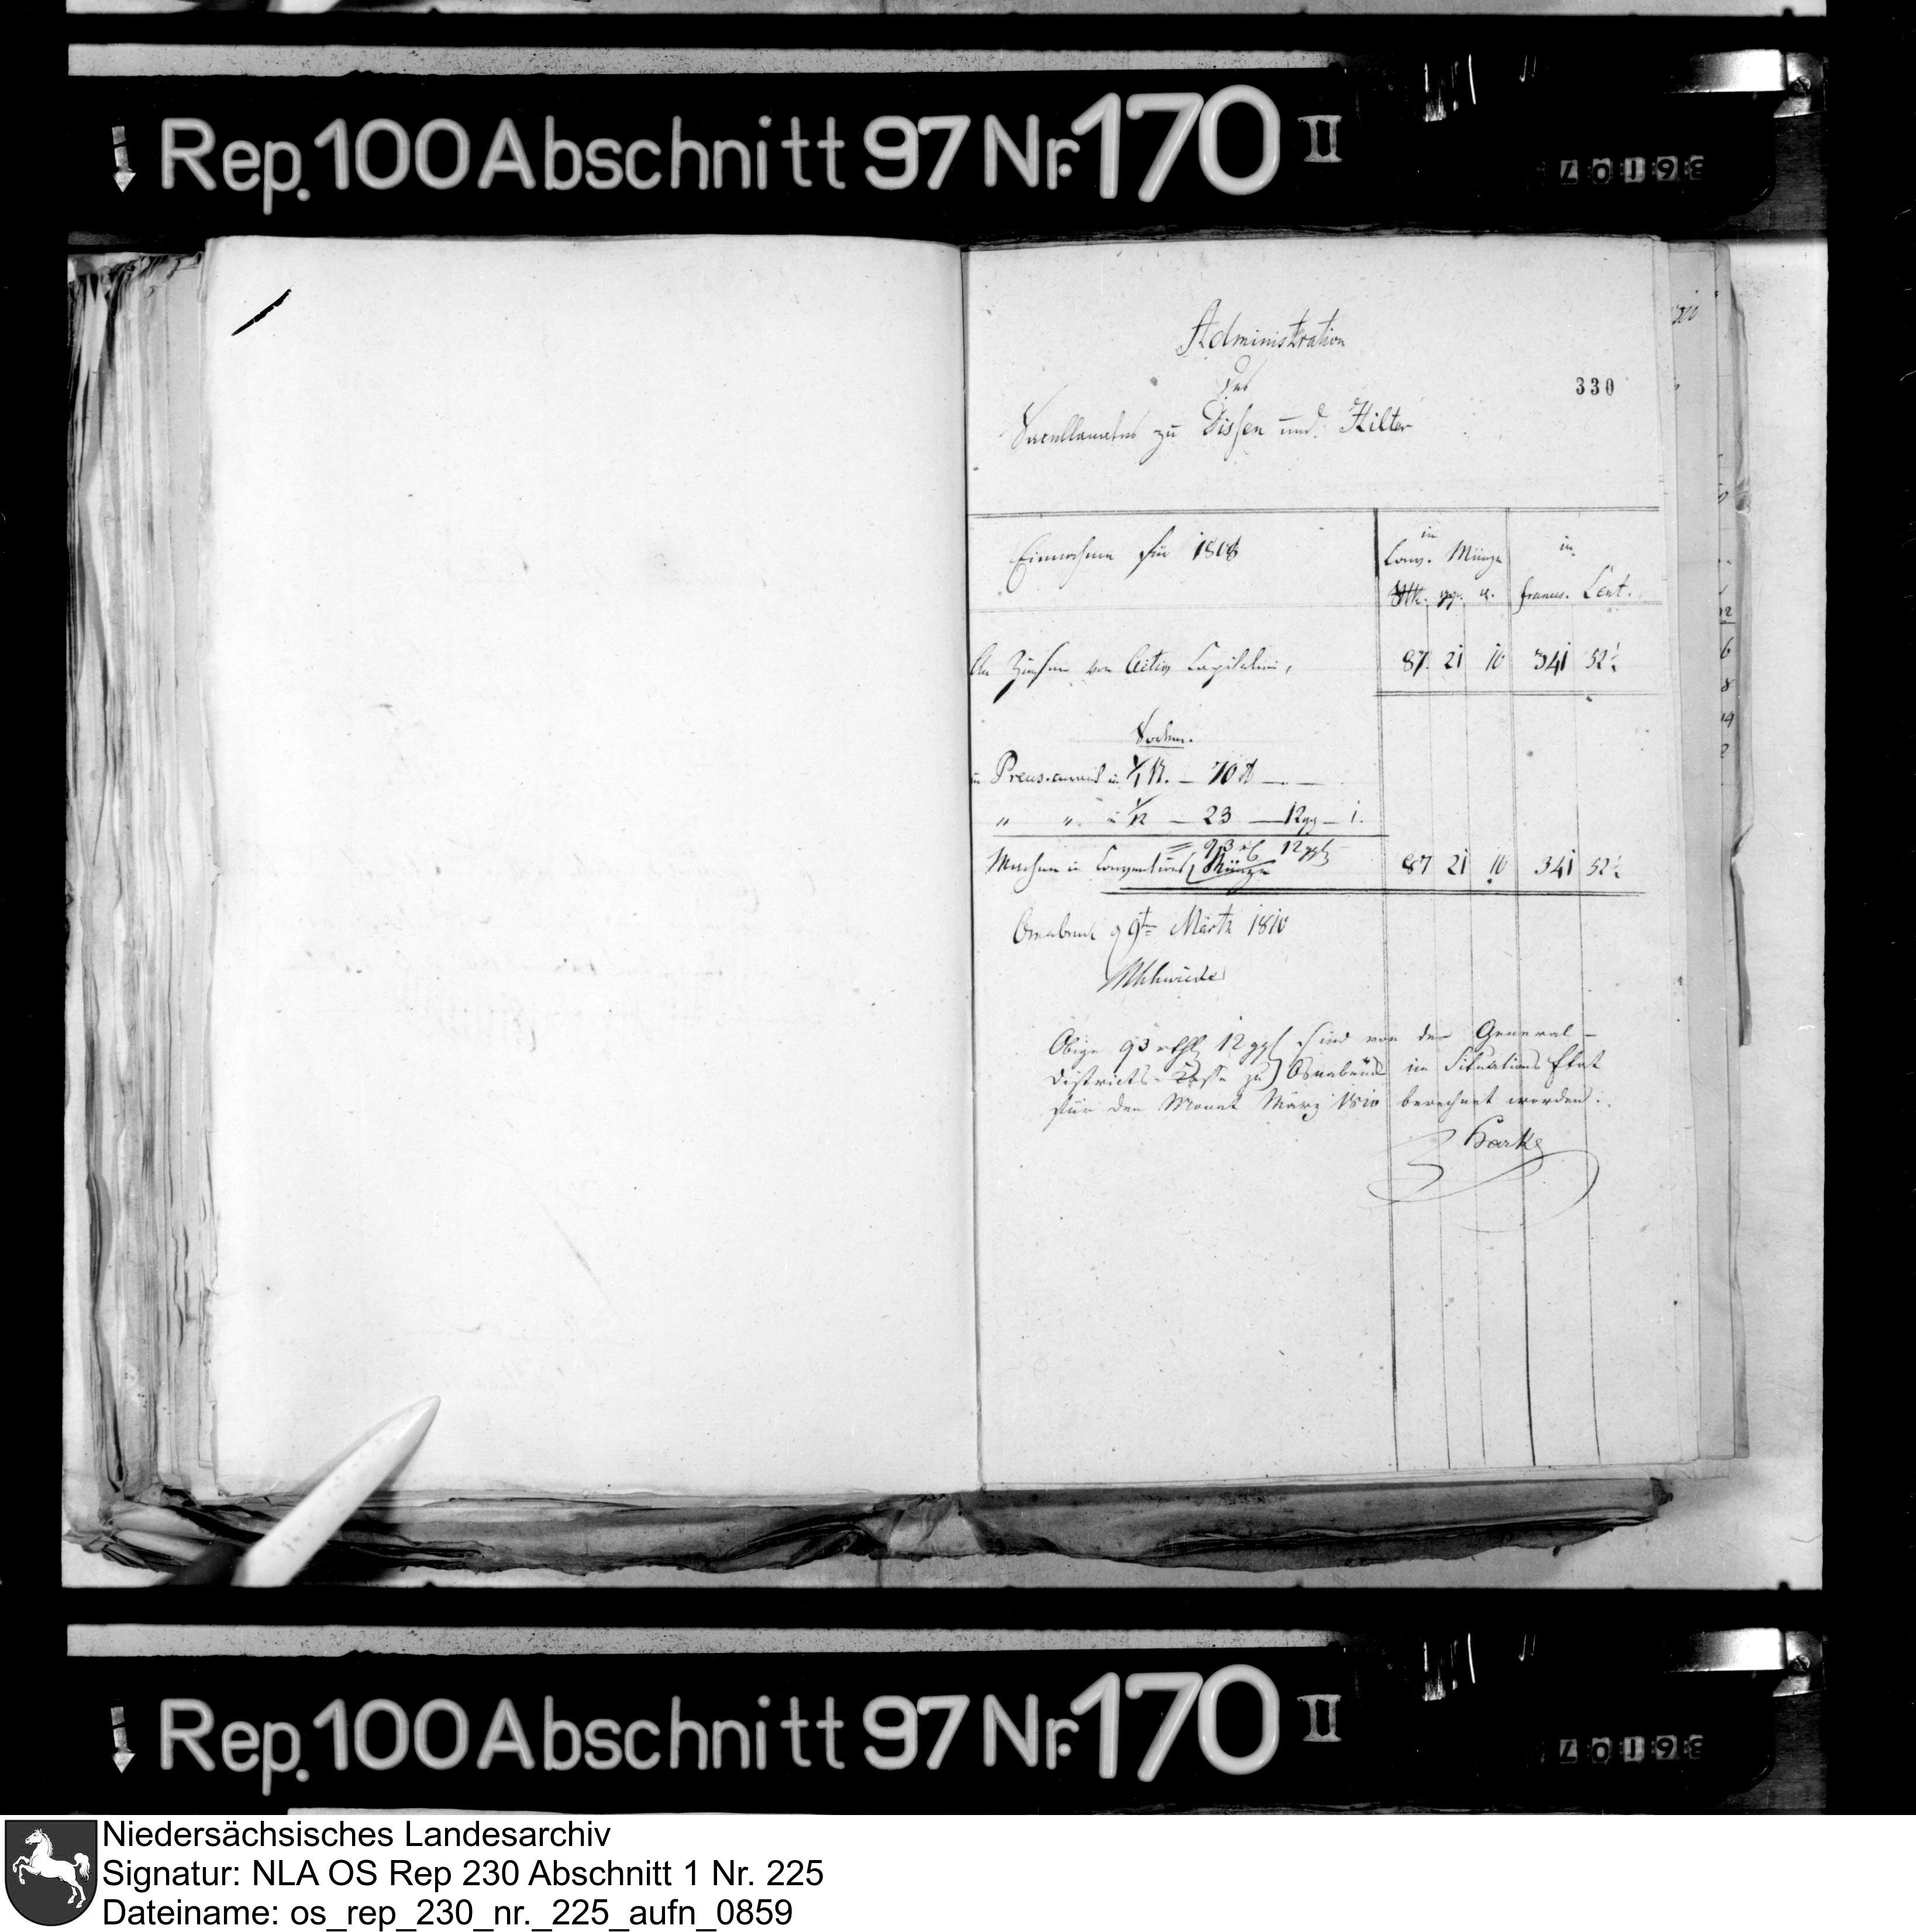 Rep. 100 Abschnitt 97 Nr. 170 II
36107
Administration
des
330
Sacellanates zu Dissen und Hilter
Einnahme für 1808
in
Conv. Münze
in
Rthl. ggr. d. francs. Cent.
An Zinsen von Activ Capitalien, 87 21 10 341 52½
Sorten.
in Preus. courant in 1/1 Rt. — 70 rt — —
" " in 1/12 — 23 — 12 gg — 1.
= 93 rt 12 ggl
Machen in Conventions Münze 87 21 10 341 52½
Osnabrück d 9ten Märtz 1810
Obige 93 rthl 12 ggl sind von der General-
Districts-Casse zu Osnabrück im Situations Etat
für den Monat März 1810 berechnet worden.
Rep. 100 Abschnitt 97 Nr. 170 II
36107
Niedersächsisches Landesarchiv
Signatur: NLA OS Rep 230 Abschnitt 1 Nr. 225
Dateiname: os_rep_230_nr._225_aufn_0859